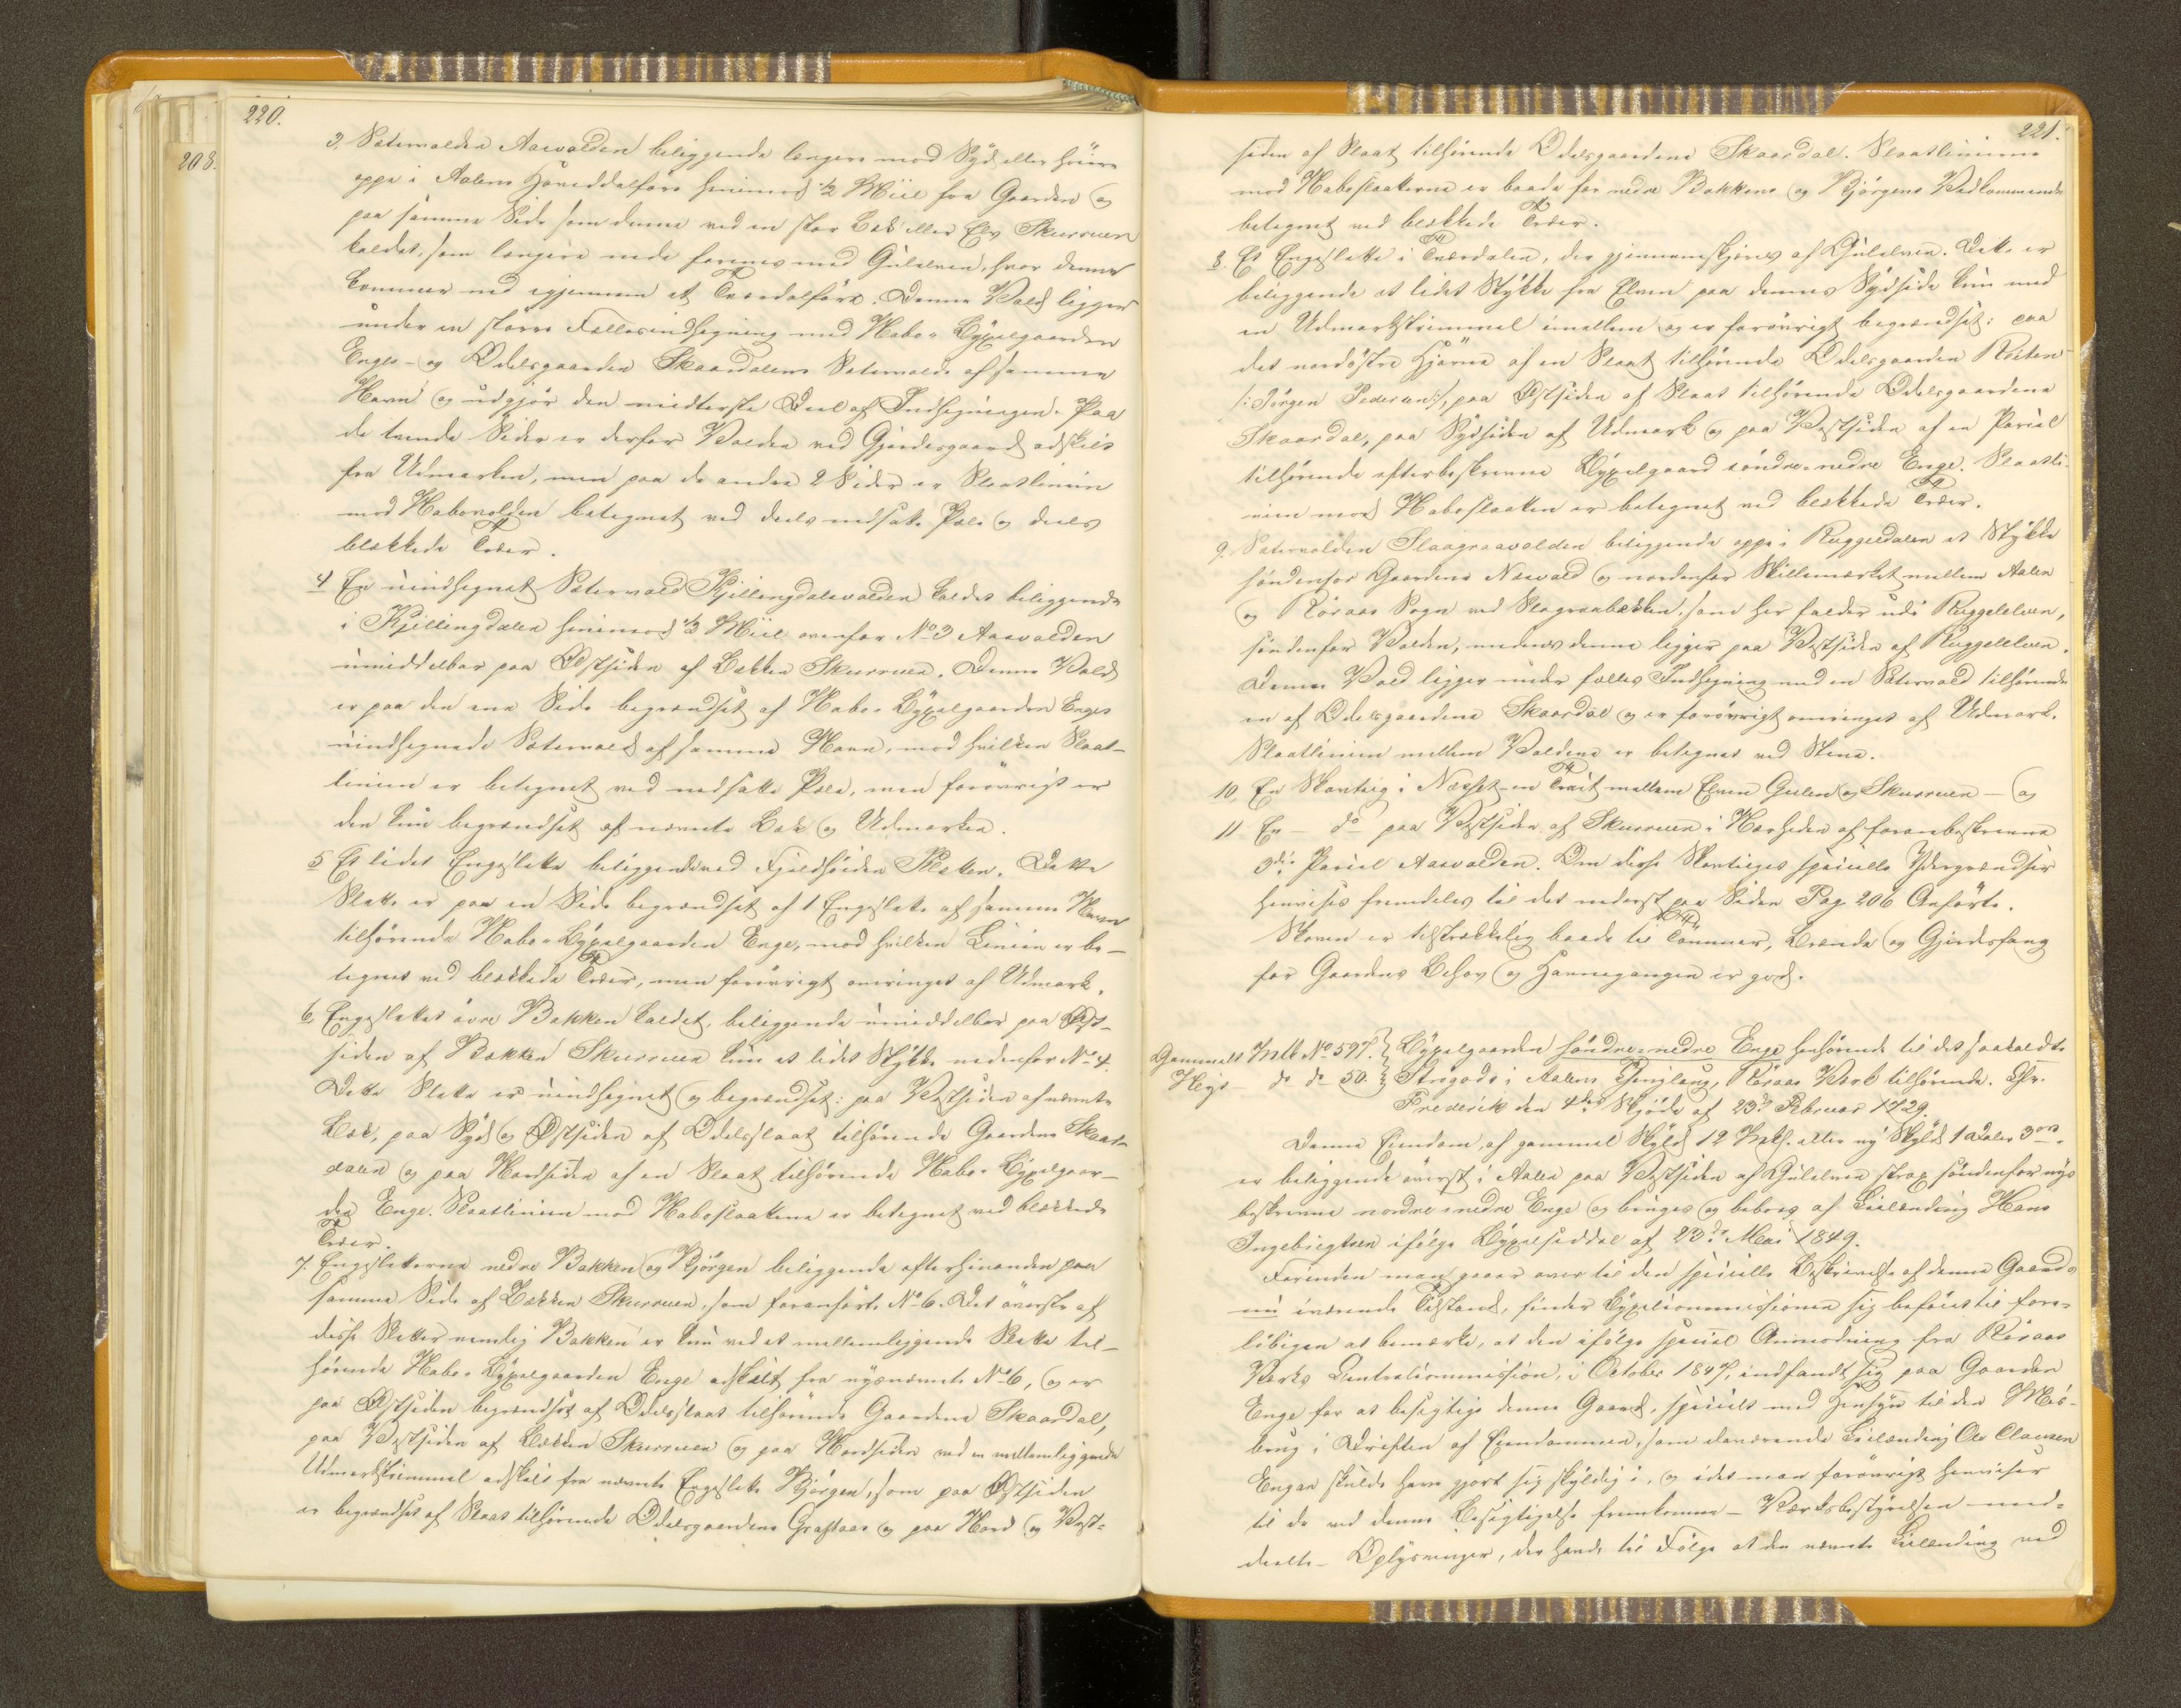 220.
208.
3. Sætervolden Aasvolden beliggende længere mod Syd eller høiere
oppe i Aalens Hoveddalføre henimod 1/2 Miil fra Gaarden og
paa samme Side som denne ved en stor Bæk eller Elv Skurruen
kaldet, som længere nede forenes med Gulelven, hvor denne
kommer ned igjennem et Tværdalføre. Denne Vold ligger
under en større Fællesindhegning med Nabo- Bygselgaarden
Enges- og Odelsgaarden Skaardalens Sætervolde af samme
Navn og udgjør den midterste Deel af Indhegningen. Paa
de tvende Sider er derfor Volden ved Gjerdesgaard adskilt
fra Udmarken, men paa de andre 2 Sider er Slaatlinien
mod Nabovolden betegnet ved deels nedsatte Pæle og deels
blekkede Træer.
4 En uindhegnet Sætervold Kjillingdalsvolden kaldet beliggende
i Kjillingdalen henimod 1/2 Miil ovenfor No 3 Aasvolden
umiddelbar paa Østsiden af Bækken Skurruen. Denne Vold
er paa den ene Side begrændset af Nabo- Bygselgaarden Enges
uindhegnede Sætervold af samme Navn, mod hvilken Slaat-
linien er betegnet ved nedsatte Pæle, men forøvrigt er
den kun begrændset af nævnte Bæk og Udmarken.
5 Et lidet Engeslette beliggende ved Fjeldhøiden Kletten. Dette
Slette er paa en Side begrændset af 1 Engeslette af samme Navn
tilhørende Nabo- Bygselgaarden Enge, mod hvilken Linien er be-
tegnet ved blekkede Træer, men forøvrigt omringet af Udmark.
6. Engeslettet øvre Bakken kaldet, beliggende umiddelbar paa Øst-
siden af Bækken Skurruen kun et lidet Stykke nedenfor No 4.
Dette Slette er uindhegnet og begrændset: paa Vestsiden af nævnte
Bæk, paa Syd og Østsiden af Odelsslaat tilhørende Gaardene Skaar-
dalen og paa Nordsiden af en Slaat tilhørende Nabo- Bygselgaar-
den Enge. Slaatlinien mod Naboslaatene er betegnet ved blekkede
Træer.
7. Engesletterne nedre Bakken og Bjørgen beliggende efter hinanden paa
samme Side af Bækken Skurruen, som foranførte No 6. Det øverste af
disse Sletter nemlig Bakken er kun ved et mellemliggende Slette til-
hørende Nabo- Bygselgaarden Enge adskilt fra nysnævnte No 6, og er
paa Østsiden begrændset af Odelsslaat tilhørende Gaardene Skaardal,
paa Vestsiden af Bækken Skurruen og paa Nordsiden ved en mellemliggende
Udmarkstrimmel adskilt fra nævnte Engeslette Bjørgen, som paa Østsiden
er begrændset af Slaat tilhørende Odelsgaardene Graftaas og paa Nord og Vest-
221.
siden af Slaat tilhørende Odelsgaardene Skaardal. Slaatlinierne
mod Naboslaatterne er baade for nedre Bakkens og Bjørgens Vedkommende
betegnet ved blekkede Træer.
8. Et Engeslette i Tværdalen, der gjennemskjæres af Gulelven. Dette er
beliggende et lidet Stykke fra Elven paa dennes Sydside kun med
en Udmarkstrimmel imellem og er forøvrigt begrændset: paa
det nordøstre Hjørne af en Slaat tilhørende Odelsgaarden Reiten
/: Jørgen Pedersen :/, paa Østsiden af Slaat tilhørende Odelsgaardene
Skaardal, paa Sydsiden af Udmark og paa Vestsiden af en Parcel
tilhørende efterbeskrevne Bygselgaard søndre-nedre Enge. Slaatli-
nien mod Naboslaatten er betegnet ved blekkede Træer.
9. Sætervolden Slaagraavolden beliggende oppe i Ruggeldalen et Stykke
søndenfor Gaardens Næsvold og nordenfor Skillemærket mellem Aalen
og Røraas Sogn ved Slagraabækken, som her falder udi Ruggelelven,
søndenfor Volden, medens denne ligger paa Vestsiden af Ruggelelven.
Denne Vold ligger under fælles Indhegning med en Sætervold tilhørende
en af Odelsgaardene Skaardal og er forøvrigt omringet af Udmark.
Slaatlinien mellem Voldene er betegnet ved Stene.
10, En Skovteig i Næsset - en Trait mellem Elven Gulen og Skurruen - og
11 En - do paa Vestsiden af Skurruen i Nærheden af foranbeskrevne
3die Parcel Aasvolden. Om disse Skovteiges specielle Ydergrændser
henvises fremdeles til det nederst paa Siden Pag. 206 Anførte.
Skoven er tilstrækkelig baade til Tømmer, Brænde og Gjerdefang
for Gaardens Behov og Havnegangen er god.
Gammelt Mtk No 597. } Bygselgaarden søndre-nedre Enge henhørende til det saakaldte
Nyt - do do 50. } Strøgods i Aalens Thinglaug, Røraas Værk tilhørende. Cfr.
Frederik den 4des Skjøde af 23de Februar 1729.
Denne Eiendom, af gammel Skyld 12 Mkl. eller ny Skyld 1 Daler 3 ort.
er beliggende øverst i Aalen paa Vestsiden af Gulelven strax søndenfor nys
beskrevne nordre-nedre Enge og bruges og beboes af Leilænding Hans
Ingebrigtsen ifølge Bygselseddel af 23de Mai 1849.
Forinden man gaaer over til den specielle Beskrivelse af denne Gaards
nu værende Tilstand, finder Bygselcommissionen sig beføiet til fore-
løbigen at bemærke, at den ifølge speciel Anmodning fra Røraas
Værks Centralcommission, i October 1847, indfandt sig paa Gaarden
Enge for at besigtige denne Gaard, specielt med Hensyn til den Mis-
brug i Driften af Eiendommen, som daværende Leilænding Ole Clausen
Engan skulde have gjort sig skyldig i, og idet man forøvrigt henviser
til de ved denne Besigtigelse fremkomne - Værksbestyrelsen med-
deelte - Oplysninger, der havde til Følge at den nævnte Leilænding ved